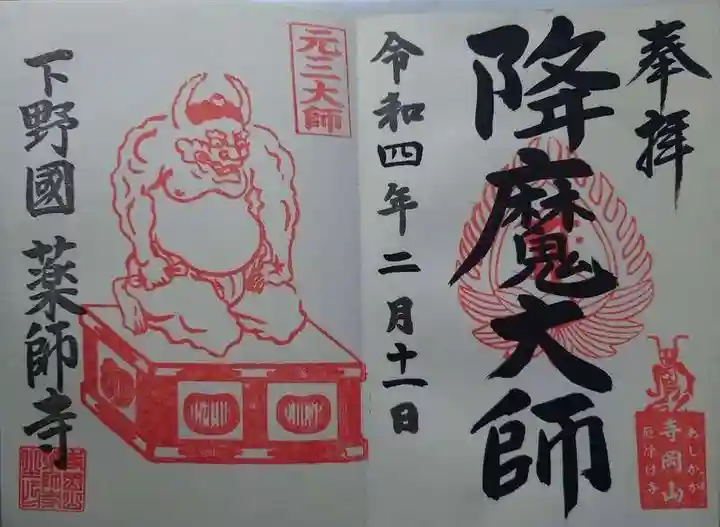 奉拝
降魔大師
令和四年二月十一日
元三大師
下野國 薬師寺
寺岡山
あしかが
厄除け寺